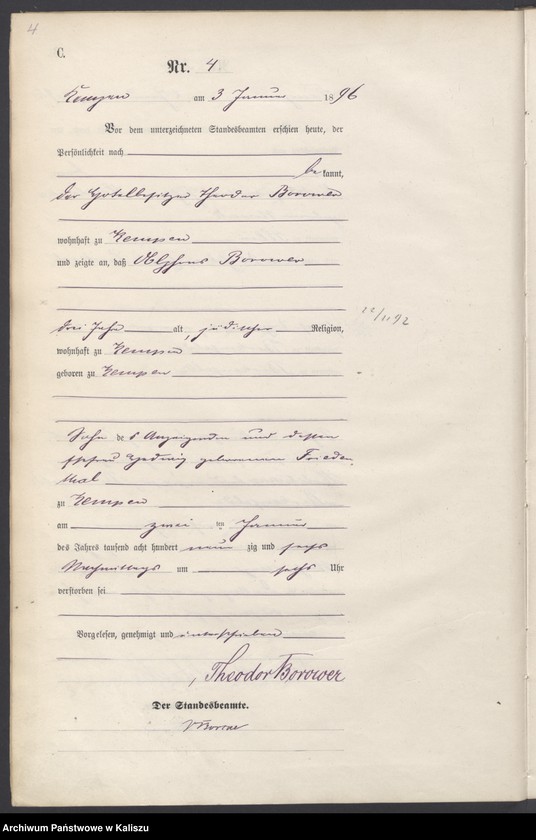 4
C.
Nr. 4
Kempen am 3 Januar 1896
Vor dem unterzeichneten Standesbeamten erschien heute, der
Persönlichkeit nach
be kannt,
der Hotelbesitzer Theodor Borower
wohnhaft zu Kempen
und zeigte an, daß Alphons Borower
drei Jahr alt, jüdischer Religion,
22/11 92
wohnhaft zu Kempen
geboren zu Kempen
Sohn des Anzeigenden und dessen
Ehefrau Hedwig geborenen Frieden
thal
zu Kempen
am zwei ten Januar
des Jahres tausend acht hundert neun zig und sechs
Nachmittags um sechs Uhr
verstorben sei
Vorgelesen, genehmigt und unterschrieben
Theodor Borower
Der Standesbeamte.
Archiwum Państwowe w Kaliszu